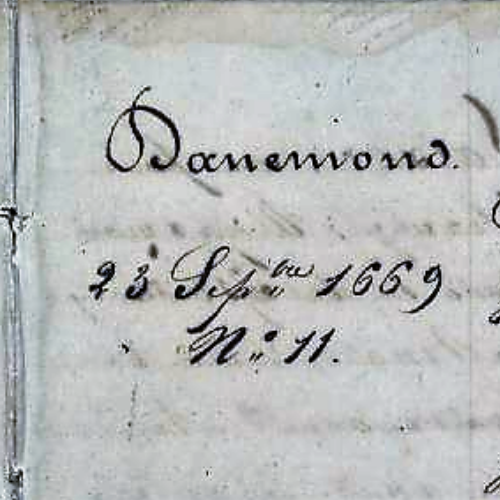 Danemond.
23 Sep.bre 1669
No. 11.